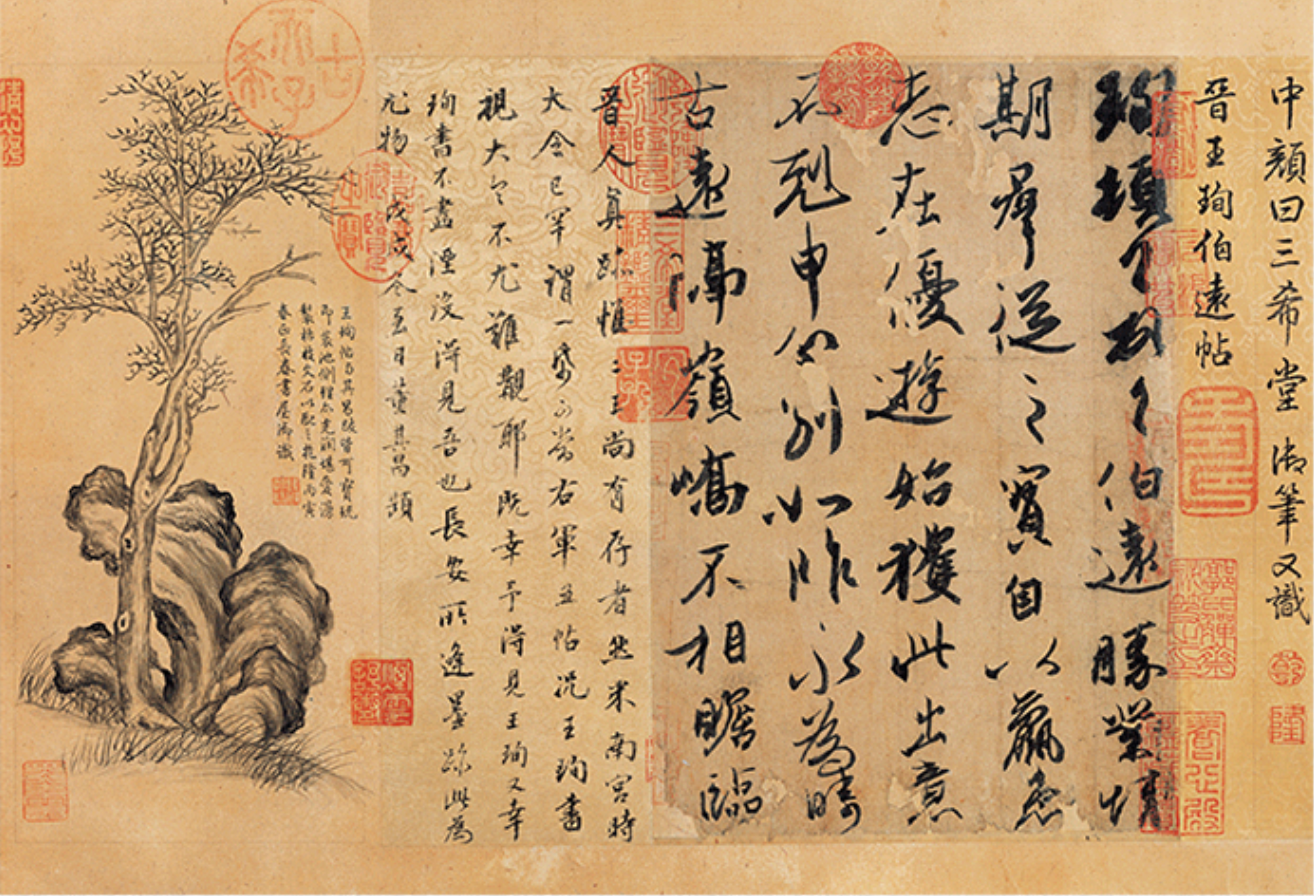 中顏曰三希堂御筆又識
晉王珣伯遠帖
珣頓首頓首伯遠勝業情
期群從之寶自以羸患
志在優遊始獲此出意
不剋申分別如昨永為疇
古遠隔嶺嶠不相瞻臨
晉人真跡惟二王尚有存者然米南宮時
大令已罕謂一紙可當右軍五帖況王珣書
視大令不尤難覯耶既幸予得見王珣又幸
珣書不盡湮沒得見吾也長安所逢墨跡此為
尤物戊戌冬至日董其昌題
王珣帖與其昌跋皆可寶玩
即裝池側理亦光潤堪愛漫
製枯枝文石以配之乾隆丙寅
春正長春書屋御識
古希天子